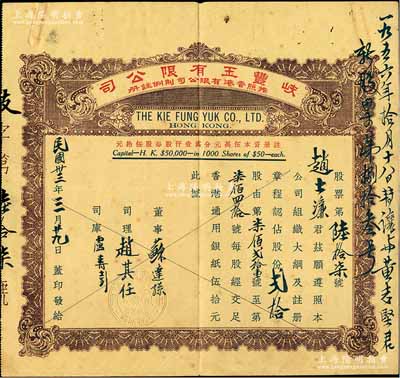 岐豐玉有限公司
遵照香港有限公司則例註册
THE KIE FUNG YUK CO., LTD.
HONG KONG.
註册資本伍萬元分為壹仟股每股伍拾元
Capital—H. K. $50,000—in 1000 Shares of $50—each.
股票第陸拾柒號
趙士濂君茲願遵照本
公司組織大綱及註册
章程認佔股份弍拾
股由第柒佰弍拾壹號至第
柒佰四拾號每股經交足
香港通用銀紙伍拾元
此號
董事蘇達孫
司理趙其任
司庫盧壽彭
民國廿三年三月廿九日蓋印發給
一九五六年拾月十八日轉讓與黃志堅君
新股票第